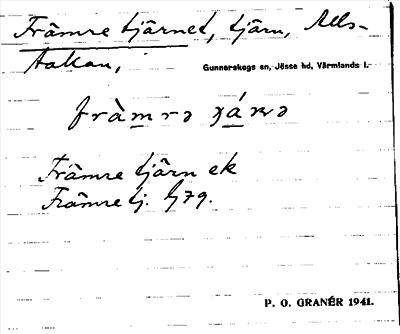 Främre tjärnet, tjärn, Alls-
takan,
Gunnarskogs sn, Jösse hd, Värmlands l.
Främre tjärn ek
Främre tj. G79.
P. O. GRANÉR 1941.